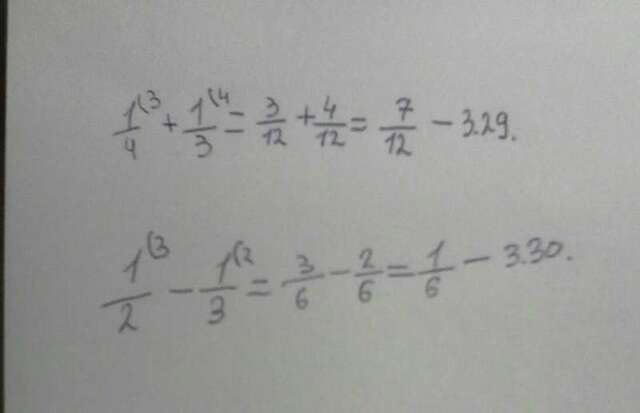 1/4⁽³ + 1/3⁽⁴ = 3/12 + 4/12 = 7/12 – 3.29.
1/2⁽³ – 1/3⁽² = 3/6 – 2/6 = 1/6 – 3.30.